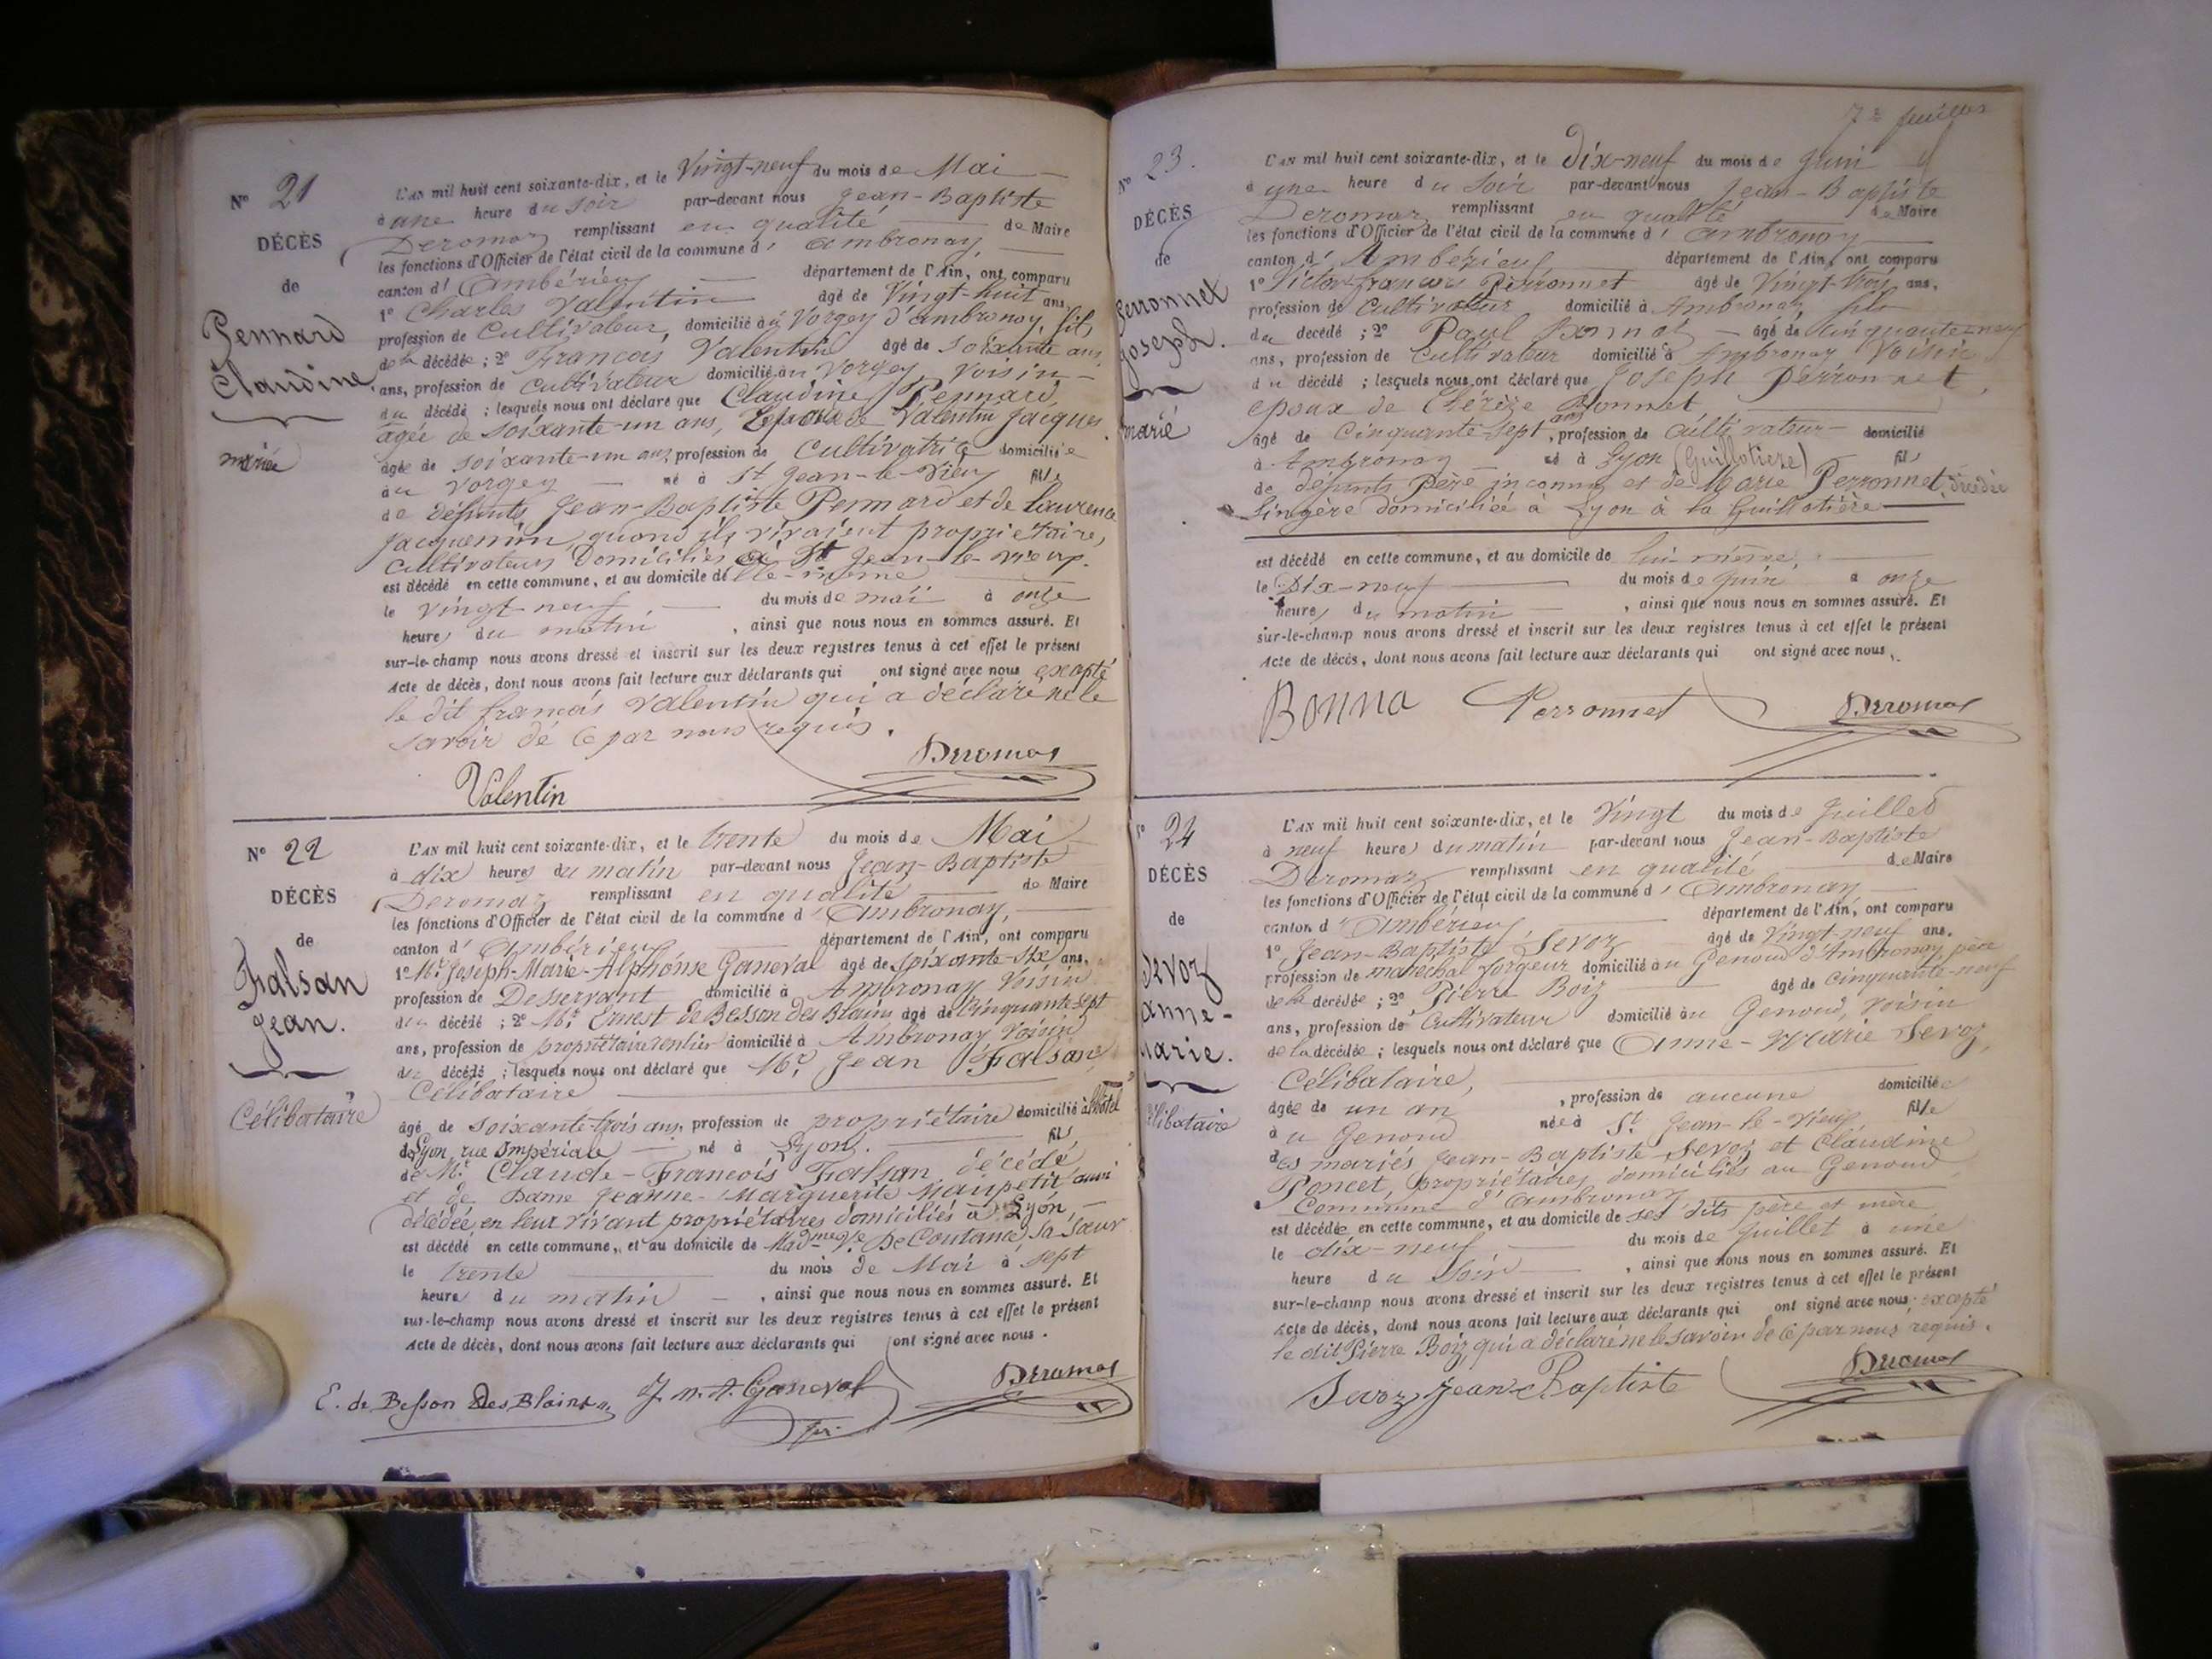 N° 21
DÉCÈS
de
Pennard
Claudine
mariée
L'AN mil huit cent soixante-dix, et le Vingt-neuf du mois de Mai
à une heure du soir par-devant nous Jean-Baptiste
Deromaz remplissant en qualité de Maire
les fonctions d'Officier de l'état civil de la commune d'Ambronay
canton d'Ambérieu département de l'Ain, ont comparu
1° Charles Valentin âgé de Vingt-huit ans,
profession de Cultivateur, domicilié à Vorgey d'ambronay, fils
de la décédée ; 2° François Valentin âgé de soixante ans
ans, profession de cultivateur domicilié au Vorgey, voisin
du décédé ; lesquels nous ont déclaré que Claudine Pennard,
agée de soixante-un ans, Epouse de Valentin Jacques.
âgée de soixante-un ans, profession de Cultivatrice domiciliée
au Vorgey né à St Jean-le-Vieux fille
de défunts Jean-Baptiste Pennard et de Laurence
Jacquemin, quand ils vivaient propriétaires,
cultivateurs Domiciliés à St Jean-le-Vieux.
est décédé en cette commune, et au domicile d'elle-même
le vingt-neuf du mois de mai à onze
heures du matin, ainsi que nous nous en sommes assuré. Et
sur-le-champ nous avons dressé et inscrit sur les deux registres tenus à cet effet le présent
Acte de décès, dont nous avons fait lecture aux déclarants qui ont signé avec nous excepté
le dit françois Valentin qui a déclaré ne le
savoir de ce par nous requis.
Deromas
Valentin
N° 22
DÉCÈS
de
Falsan
Jean.
Célibataire
L'AN mil huit cent soixante-dix, et le trente du mois de Mai
à dix heures du matin par-devant nous Jean-Baptiste
Deromaz remplissant en qualité de Maire
les fonctions d'Officier de l'état civil de la commune d'Ambronay,
canton d'Ambérieu département de l'Ain, ont comparu
1° Mr Joseph-Marie-Alphonse Ganeval âgé de soixante-six ans,
profession de Desservant domicilié à Ambronay Voisin
du décédé ; 2° Mr Ernest de Besson des Blains âgé de Cinquante-sept
ans, profession de propriétaire rentier domicilié à Ambronay Voisin
du décédé ; lesquels nous ont déclaré que Mr Jean Falsan,
Célibataire
âgé de soixante-trois ans, profession de propriétaire domicilié à l'hôtel
de Lyon, rue Impériale né à Lyon. fils
de Mr Claude-François Falsan, décédé
et de Dame Jeanne-Marguerite Maupetit aussi
décédée en leur vivant propriétaires domiciliés à Lyon,
est décédé en cette commune, et au domicile de Madme Ve De Coutance sa sœur
le trente du mois de Mai à sept
heures du matin, ainsi que nous nous en sommes assuré. Et
sur-le-champ nous avons dressé et inscrit sur les deux registres tenus à cet effet le présent
Acte de décès, dont nous avons fait lecture aux déclarants qui ont signé avec nous.
Deromas
E. de Besson Des Blains J. M. A. Ganeval
7e feuillet
N° 23.
DÉCÈS
de
Perronnet
Joseph.
marié
L'AN mil huit cent soixante-dix, et le Dix-neuf du mois de Juin
à une heure du soir par-devant nous Jean-Baptiste
Deromaz remplissant en qualité de Maire
les fonctions d'Officier de l'état civil de la commune d'Ambronay
canton d'Ambérieu département de l'Ain, ont comparu
1° Victor françois Perronnet âgé de Vingt-trois ans,
profession de Cultivateur domicilié à Ambronay fils
du décédé ; 2° Paul Bonnat âgé de cinquante-neuf
ans, profession de Cultivateur domicilié à Ambronay Voisin
du décédé ; lesquels nous ont déclaré que Joseph Perronnet,
époux de Thérèze Bonnet
âgé de Cinquante-sept ans, profession de Cultivateur domicilié
à Ambronay né à Lyon (Guillotière) fils
de défunts Père inconnu et de Marie Perronnet, décédée
Lingère domiciliée à Lyon à la Guillotière
est décédé en cette commune, et au domicile de lui-même,
le Dix-neuf du mois de Juin à onze
heures du matin, ainsi que nous nous en sommes assuré. Et
sur-le-champ nous avons dressé et inscrit sur les deux registres tenus à cet effet le présent
Acte de décès, dont nous avons fait lecture aux déclarants qui ont signé avec nous.
Bonna Perronnet Deromas
N° 24
DÉCÈS
de
Sevoz
Anne-
Marie.
Célibataire
L'AN mil huit cent soixante-dix, et le Vingt du mois de Juillet
à neuf heures du matin par-devant nous Jean-Baptiste
Deromaz remplissant en qualité de Maire
les fonctions d'Officier de l'état civil de la commune d'Ambronay
canton d'Ambérieu département de l'Ain, ont comparu
1° Jean-Baptiste Sevoz âgé de Vingt-neuf ans,
profession de maréchal forgeur domicilié au Genoud d'Ambronay, père
de la décédée ; 2° Pierre Boiz âgé de cinquante-neuf
ans, profession de Cultivateur domicilié au Genoud, voisin
de la décédée ; lesquels nous ont déclaré que Anne-Marie Sevoz,
Célibataire,
âgée de un an, profession de aucune domiciliée
au Genoud née à St Jean-le-Vieux fille
des mariés Jean-Baptiste Sevoz et Claudine
Poncet, propriétaires, domiciliés au Genoud,
Commune d'Ambronay
est décédée en cette commune, et au domicile de ses dits père et mère
le dix-neuf du mois de Juillet à une
heure du soir, ainsi que nous nous en sommes assuré. Et
sur-le-champ nous avons dressé et inscrit sur les deux registres tenus à cet effet le présent
Acte de décès, dont nous avons fait lecture aux déclarants qui ont signé avec nous, excepté
le dit Pierre Boiz, qui a déclaré ne le savoir de ce par nous requis.
Deromas
Sevoz Jean Baptiste